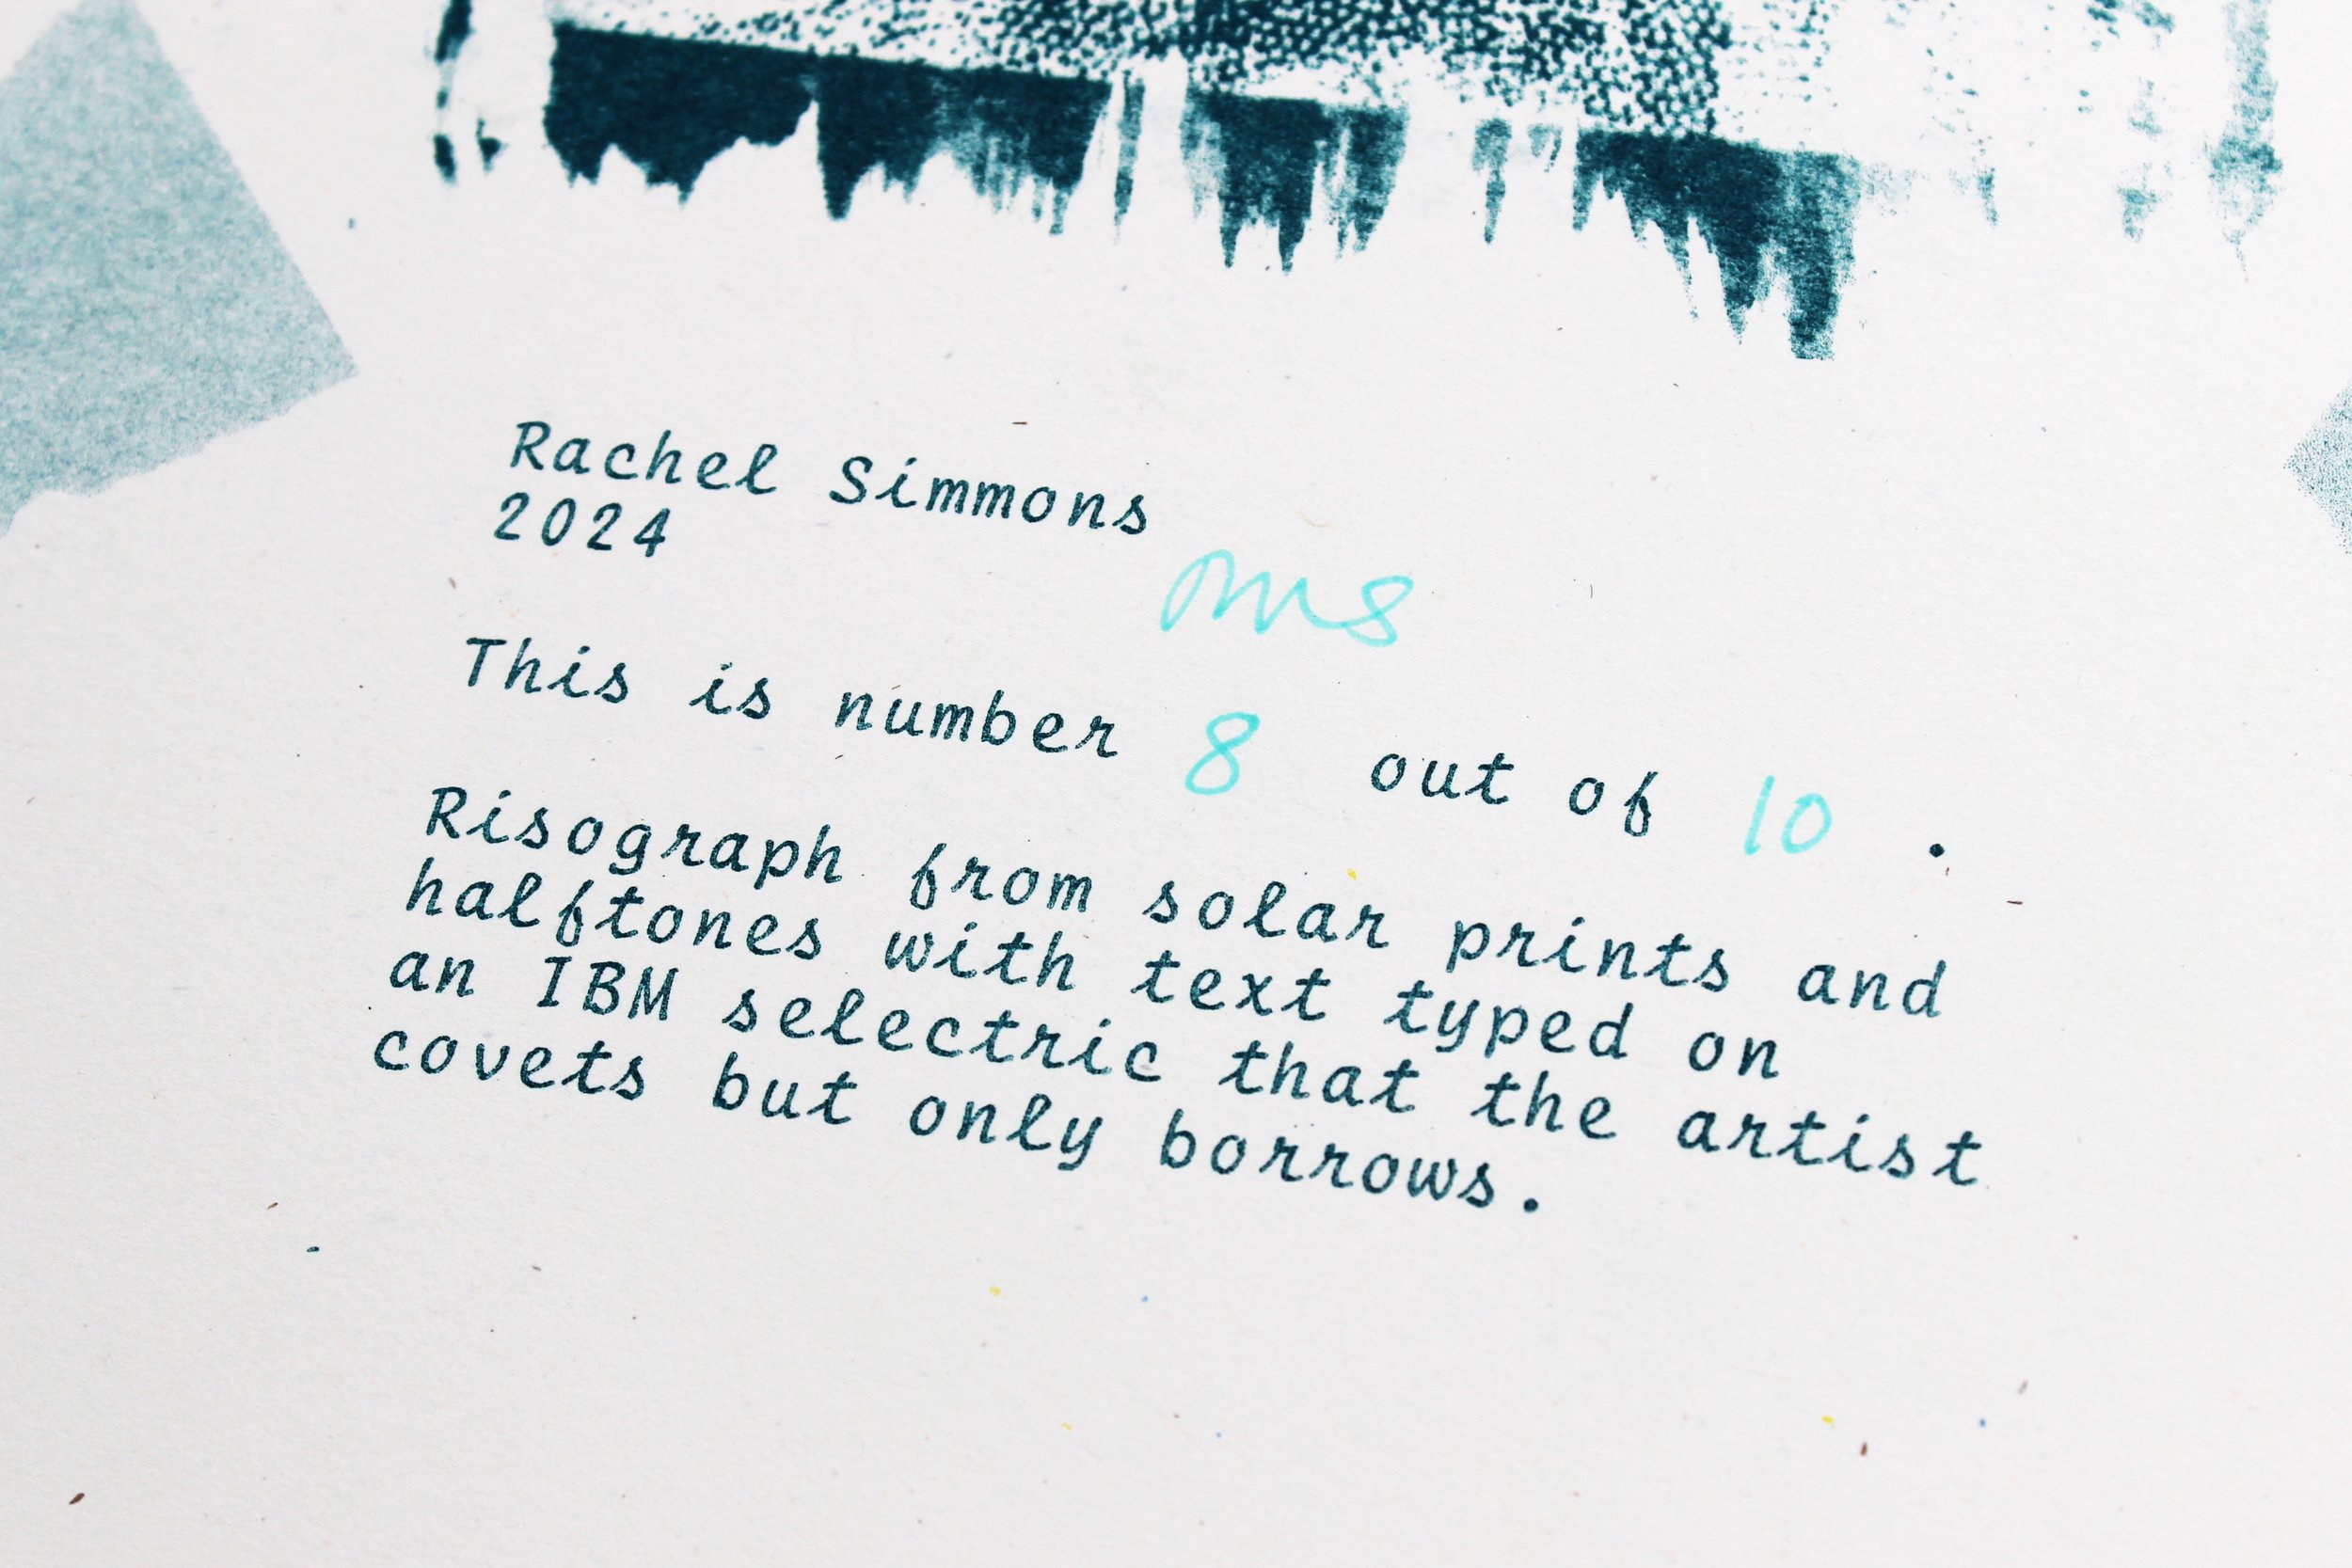 Rachel Simmons
2024
This is number 8 out of 10 .
Risograph from solar prints and
halftones with text typed on
an IBM selectric that the artist
covets but only borrows.